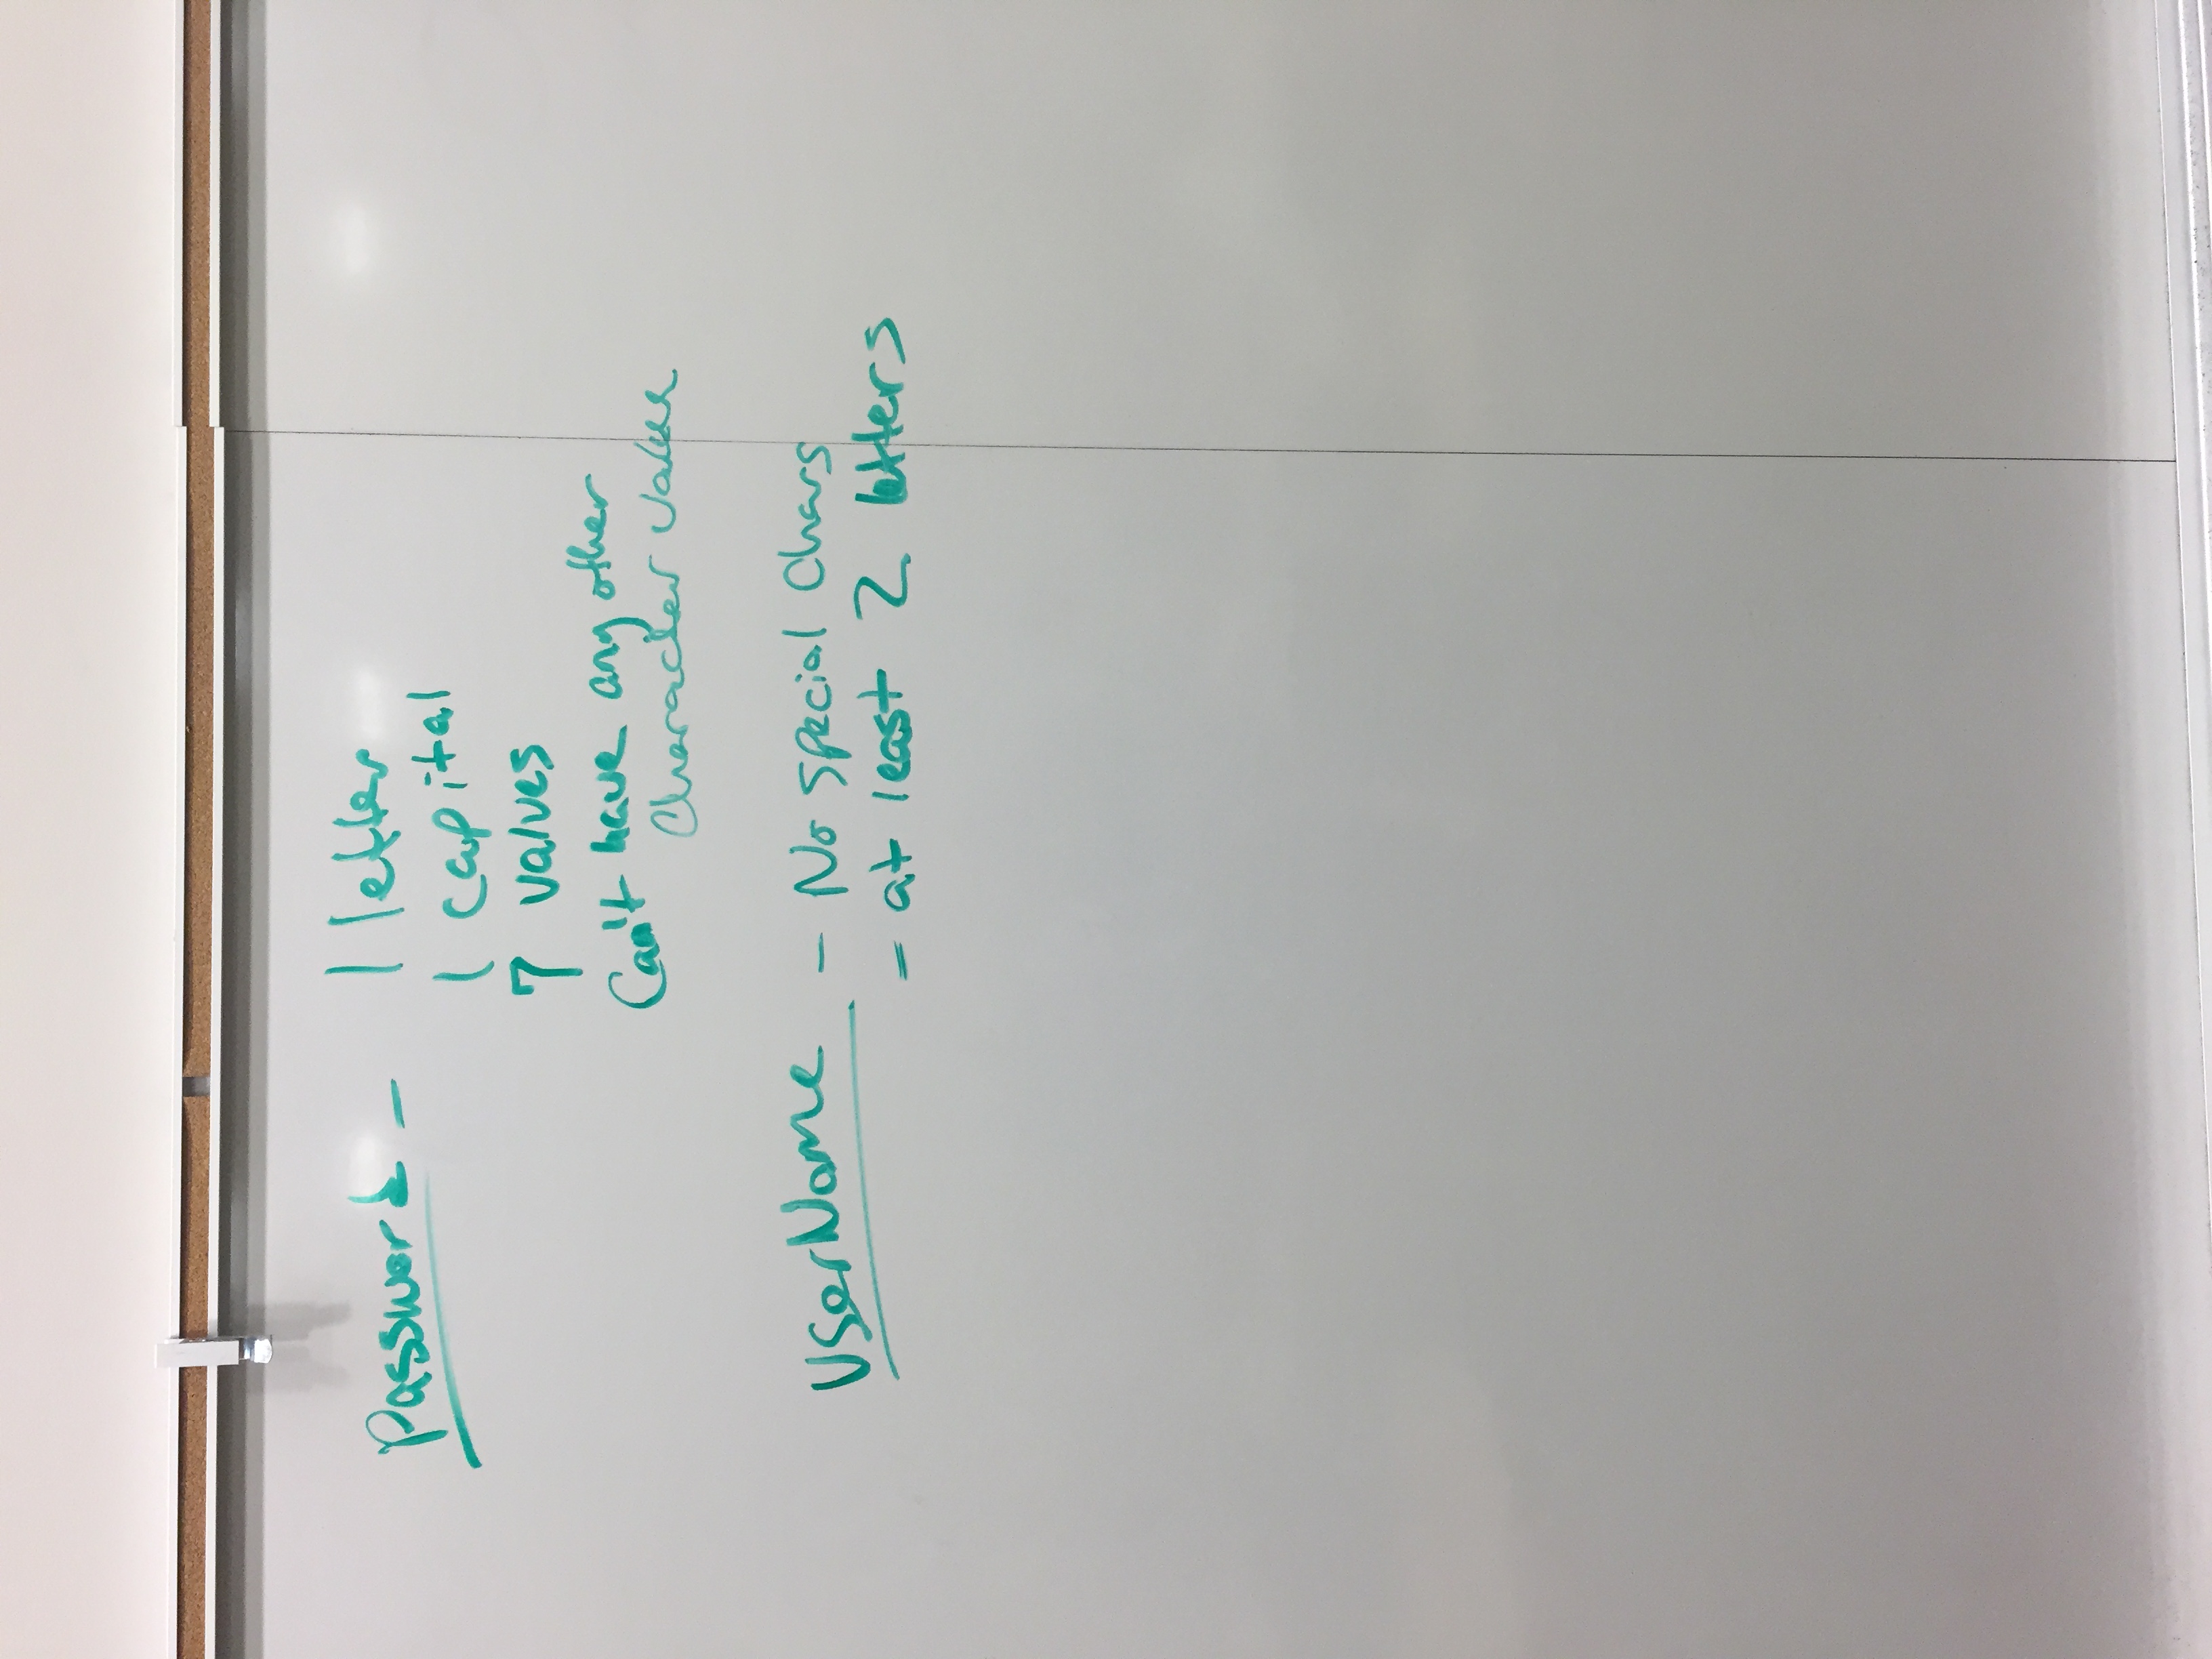 Password - 1 letter
1 capital
7 values
Can't have any other
Character values
UserName - No special Chars
- at least 2 letters